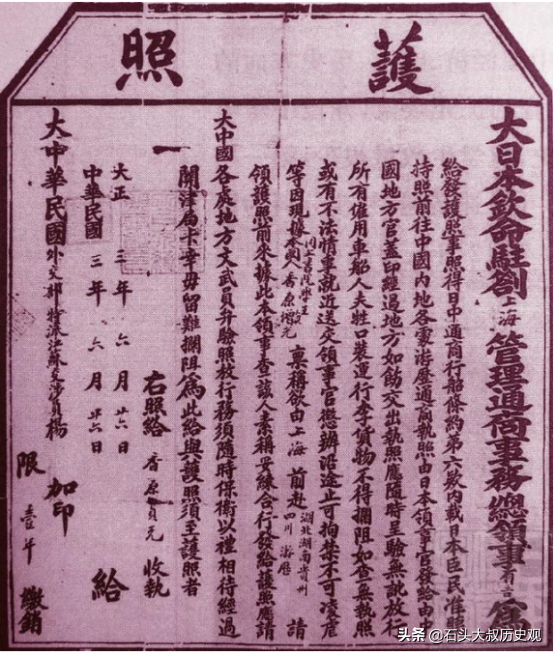 護照
大日本欽命駐劄上海管理通商事務總領事有吉 為
給發護照事照得日中通商行船條約第六款內載日本臣民准
持照前往中國內地各處游歷通商執照由日本領事官發給由
國地方官蓋印經過地方如飭交出執照應隨時呈驗無訛放行
所有僱用車船人夫牲口裝運行李貨物不得攔阻如查無執照
或有不法情事就近送交領事官懲辦沿途止可拘禁不可凌虐
等因現據本國人香原增元稟稱欲由上海前赴湖北湖南貴州四川游歷請
領護照前來據此本領事查該人素稱妥練合行發給護照應請
大中國各處地方文武員弁驗照放行務須隨時保衛以禮相待經過
關津局卡幸毋留難攔阻為此給與護照須至護照者
右照給香原貞元收執
大正三年六月廿六日
給
中華民國三年六月廿六日
大中華民國外交部特派江蘇交涉員楊
加印
限壹年繳銷
头条@石头大叔历史观